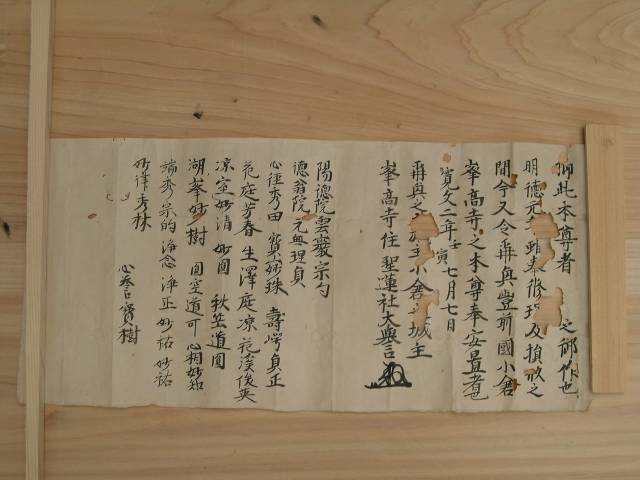 御此本尊者 之御作也
明徳元 雖奉修理及損故之
間今又令再興豊前國小倉
峯高寺之本尊奉安置者也
寛文二年壬寅七月七日
再興之 主小倉之城主
峯高寺住 聖蓮社大譽言
陽徳院雲巖宗勺
徳翁院元無理貞
心徃秀田 寶 珠 壽 貞正
花庭芳春 生澤庭凉 花渓俊英
凉室妙清 妙圓 秋笠道圓
湖峯妙樹 圓空道可 心相妙知
端秀宗的 浄念 浄正 妙祐 妙祐
妙 秀林
心譽寶樹